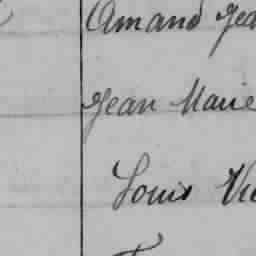 Amand Jea
Jean Marie
Louis Vic